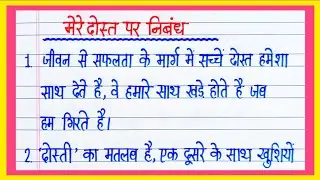 मेरे दोस्त पर निबंध
1. जीवन से सफलता के मार्ग में सच्चें दोस्त हमेशा
साथ देते है, वे हमारे साथ खड़े होते है जब
हम गिरते है।
2. 'दोस्ती' का मतलब है, एक दूसरे के साथ खुशियों